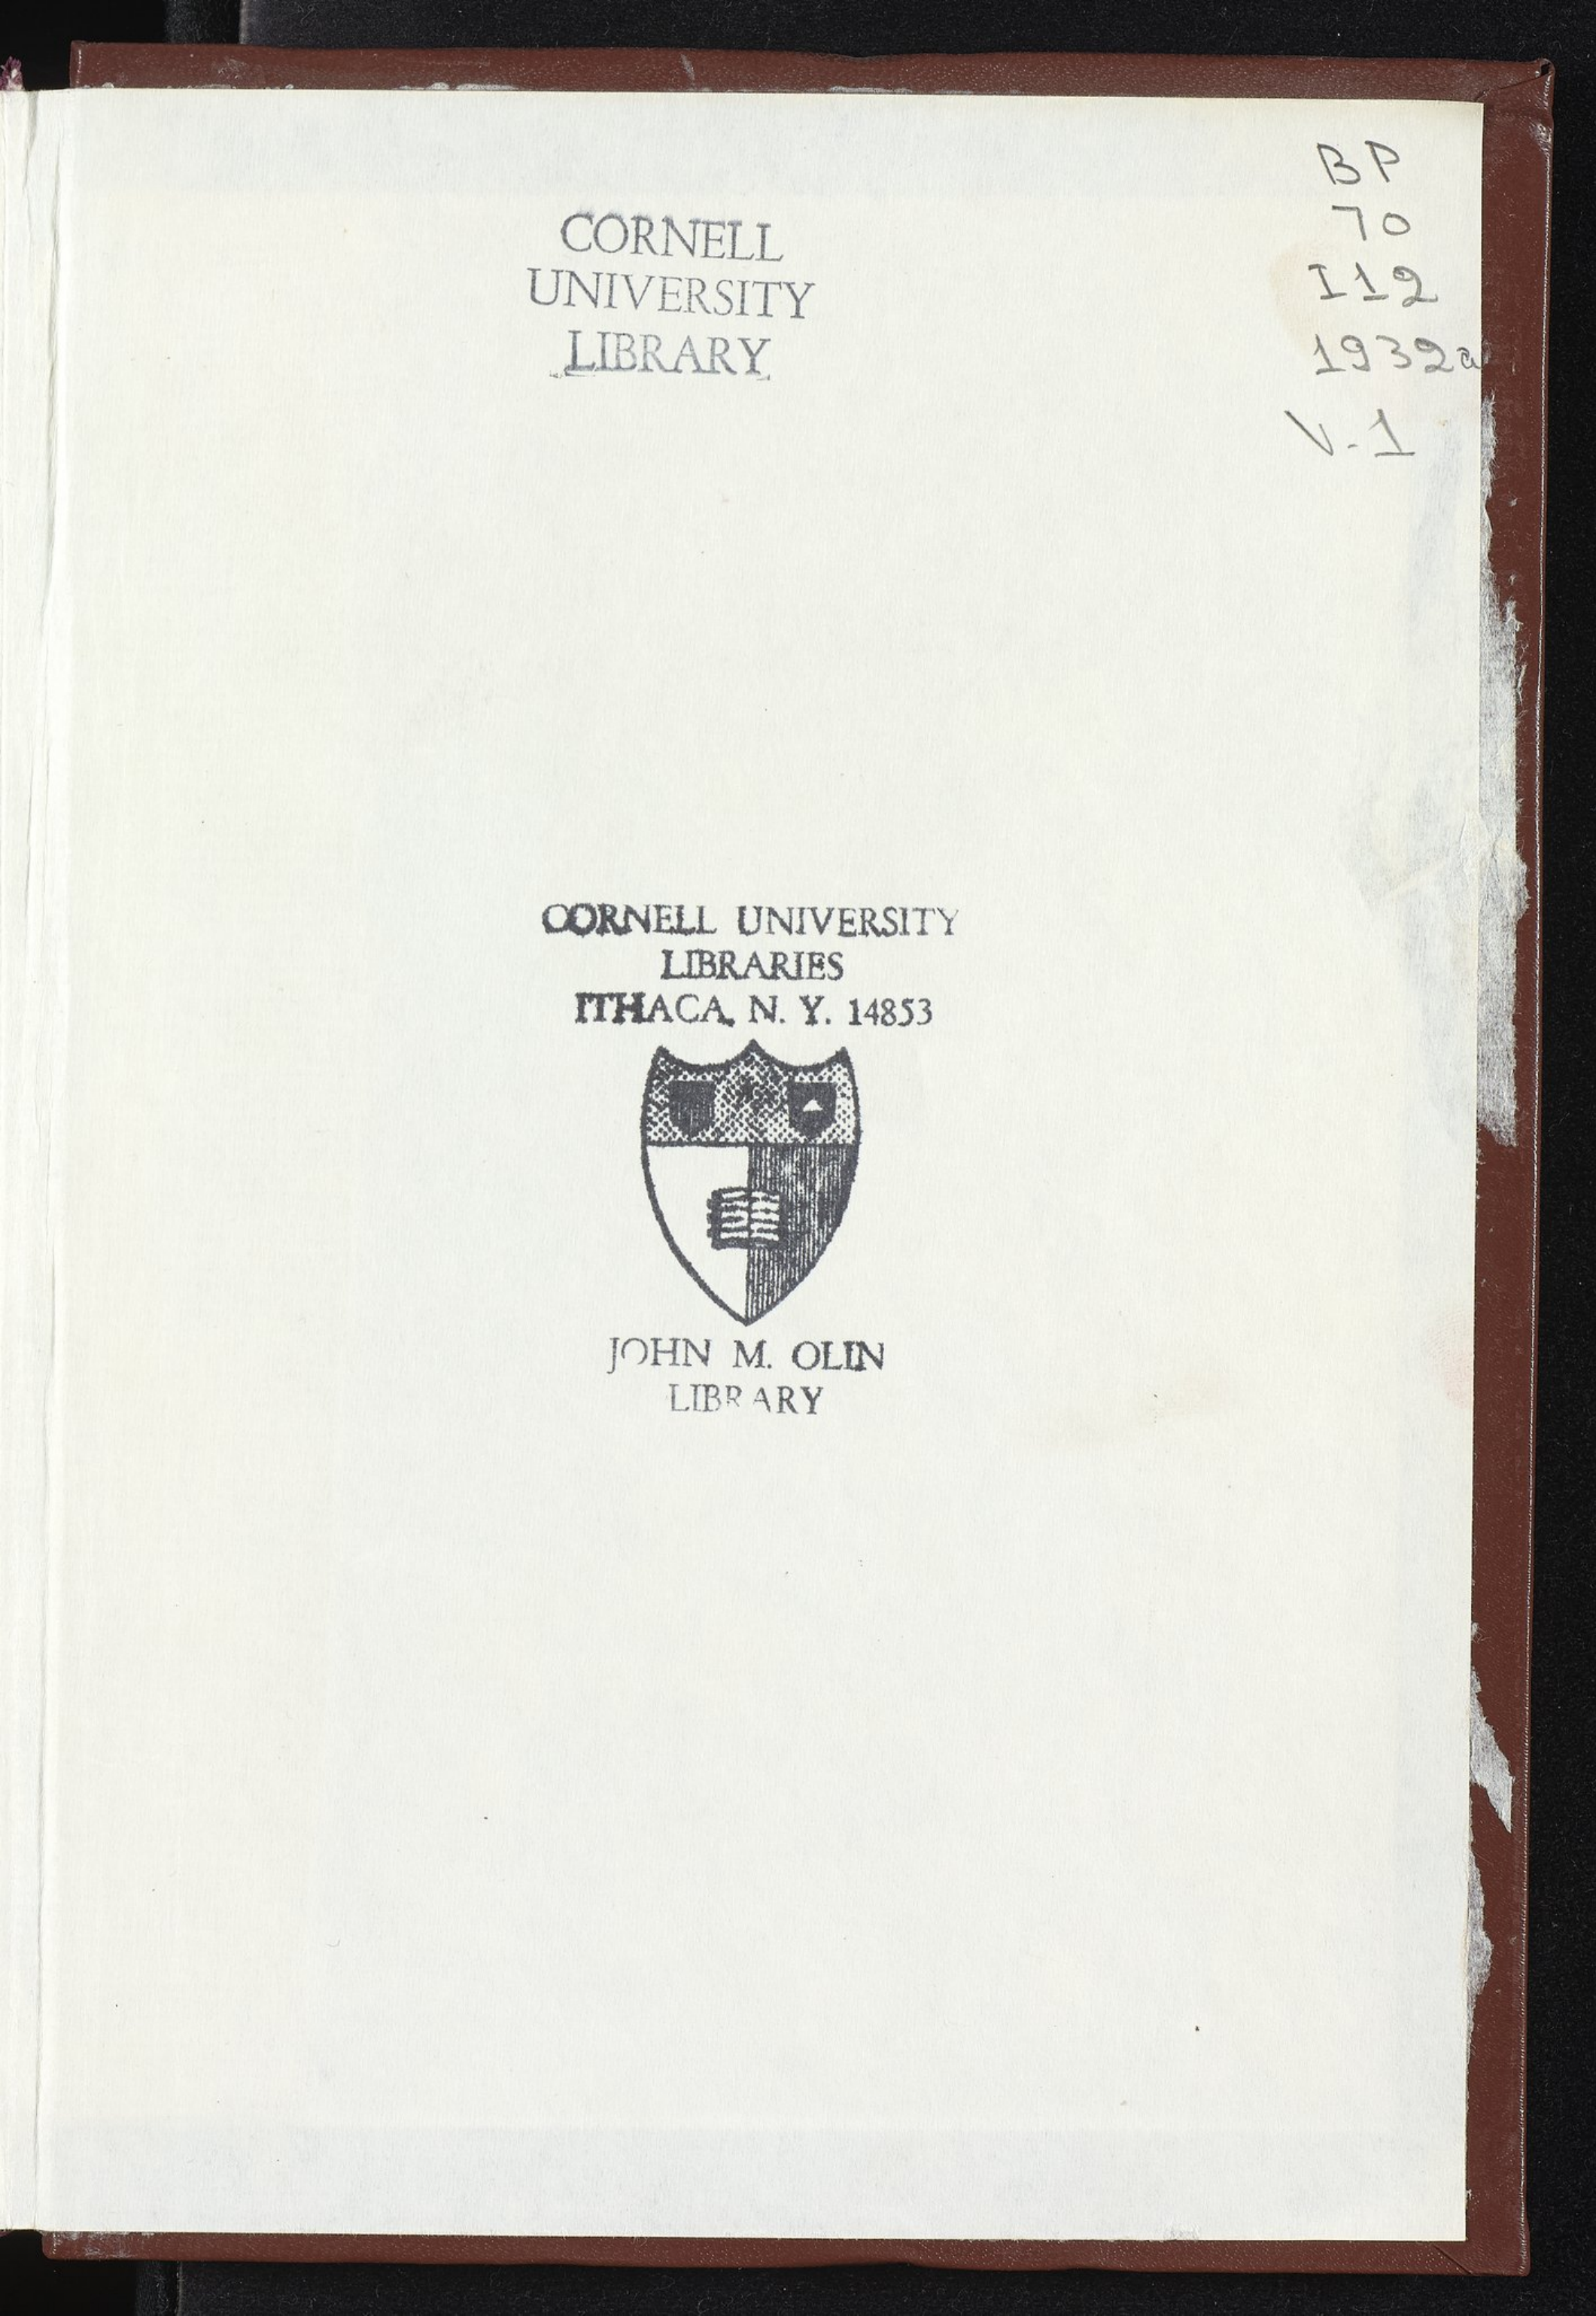 CORNELL
UNIVERSITY
LIBRARY
BP
70
I12
1932a
V.1
CORNELL UNIVERSITY
LIBRARIES
ITHACA, N. Y. 14853
JOHN M. OLIN
LIBRARY